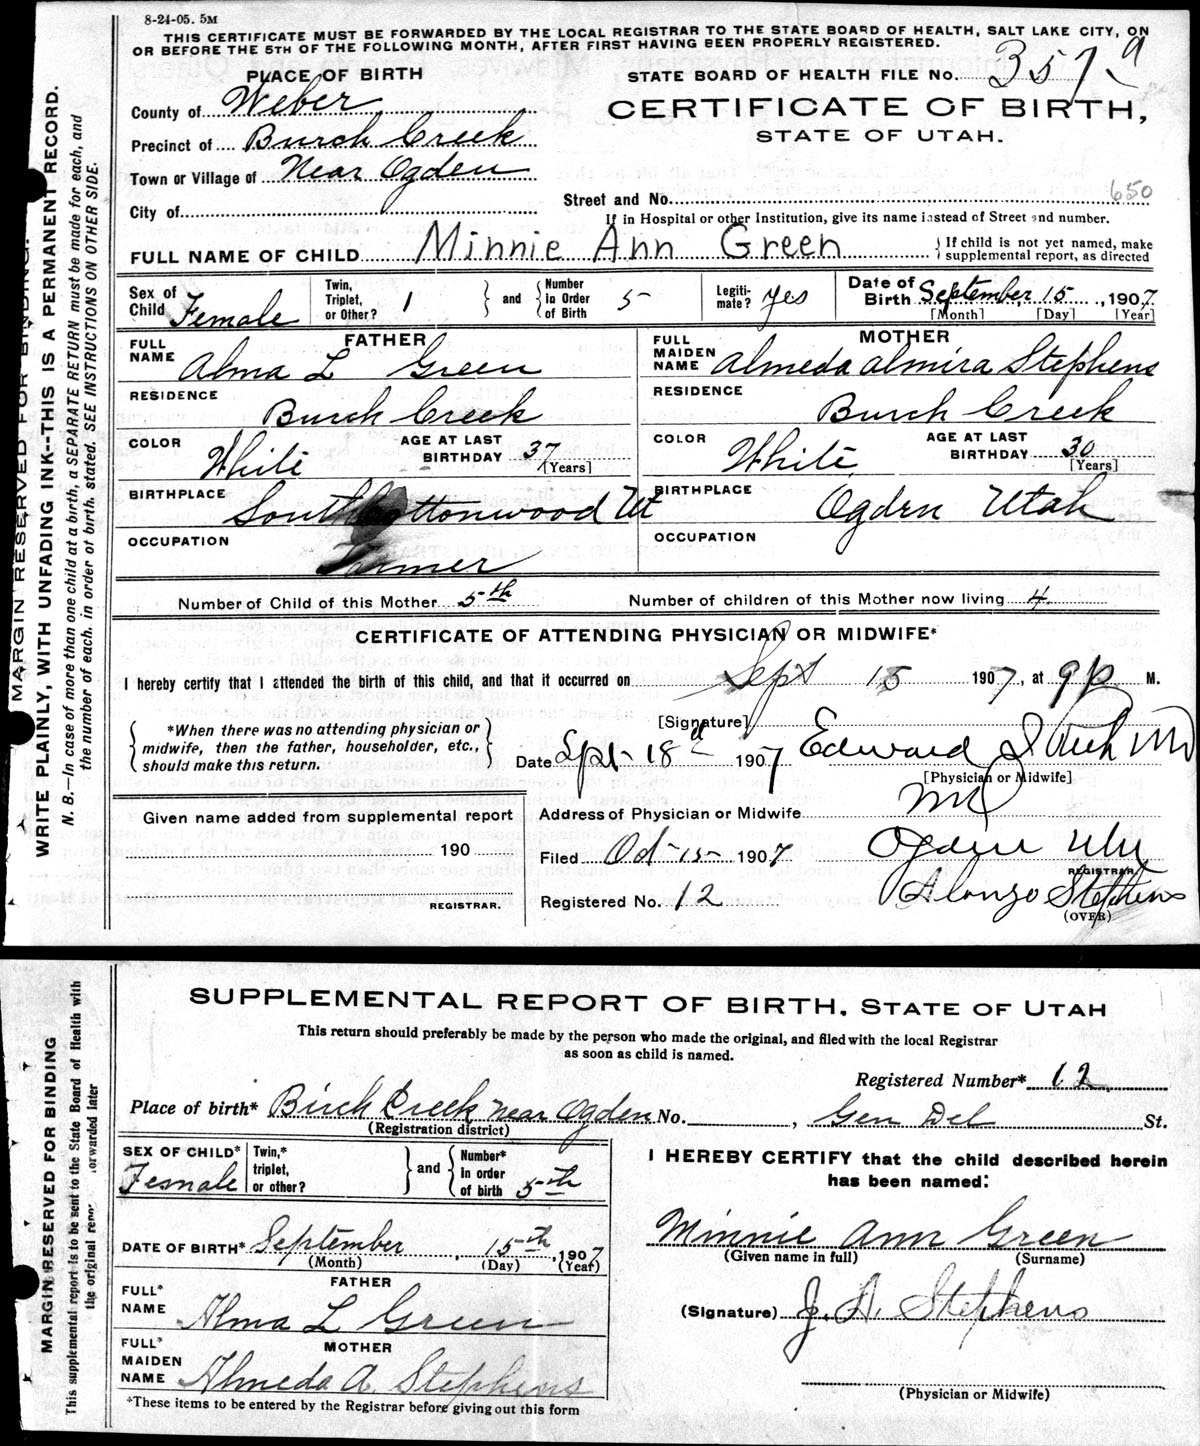 8-24-05. 5M
THIS CERTIFICATE MUST BE FORWARDED BY THE LOCAL REGISTRAR TO THE STATE BOARD OF HEALTH, SALT LAKE CITY, ON
OR BEFORE THE 5TH OF THE FOLLOWING MONTH, AFTER FIRST HAVING BEEN PROPERLY REGISTERED.
MARGIN RESERVED FOR BINDING.
WRITE PLAINLY, WITH UNFADING INK--THIS IS A PERMANENT RECORD.
N. B.—In case of more than one child at a birth, a SEPARATE RETURN must be made for each, and
the number of each, in order of birth, stated. SEE INSTRUCTIONS ON OTHER SIDE.
PLACE OF BIRTH
STATE BOARD OF HEALTH FILE No. 357
County of Weber
CERTIFICATE OF BIRTH,
STATE OF UTAH.
Precinct of Burch Creek
Town or Village of Near Ogden
City of
Street and No. 650
If in Hospital or other Institution, give its name instead of Street and number.
FULL NAME OF CHILD Minnie Ann Green
If child is not yet named, make
supplemental report, as directed
Sex of Child Female
Twin, Triplet, or Other? 1
and Number in Order of Birth 5
Legitimate? yes
Date of Birth September 15, 1907
[Month] [Day] [Year]
FATHER
FULL NAME Alma L Green
MOTHER
FULL MAIDEN NAME Almeda Almira Stephens
RESIDENCE Burch Creek
RESIDENCE Burch Creek
COLOR White
AGE AT LAST BIRTHDAY 37 [Years]
COLOR White
AGE AT LAST BIRTHDAY 30 [Years]
BIRTHPLACE South Cottonwood Ut
BIRTHPLACE Ogden Utah
OCCUPATION Farmer
OCCUPATION
Number of Child of this Mother 5th
Number of children of this Mother now living 4
CERTIFICATE OF ATTENDING PHYSICIAN OR MIDWIFE*
I hereby certify that I attended the birth of this child, and that it occurred on Sept 15 1907, at 9 p M.
*When there was no attending physician or
midwife, then the father, householder, etc.,
should make this return.
[Signature]
Date Sept 18d 1907 Edward I MD
[Physician or Midwife]
MD
Given name added from supplemental report
190
REGISTRAR.
Address of Physician or Midwife
Ogden Utah
Filed Oct 15 1907
REGISTRAR
Registered No. 12 Alonzo Stephens
(OVER)
MARGIN RESERVED FOR BINDING
This supplemental report is to be sent to the State Board of Health with
the original forwarded later
SUPPLEMENTAL REPORT OF BIRTH, STATE OF UTAH
This return should preferably be made by the person who made the original, and filed with the local Registrar
as soon as child is named.
Registered Number* 12
Place of birth* Birch Creek near Ogden No. , Gen Del St.
(Registration district)
SEX OF CHILD* Female
Twin,* triplet, or other?
and Number* in order of birth 5th
I HEREBY CERTIFY that the child described herein
has been named:
Minnie Ann Green
(Given name in full) (Surname)
DATE OF BIRTH* September, 15th, 1907
(Month) (Day) (Year)
FATHER
FULL* NAME Alma L Green
(Signature) J. A. Stephens
MOTHER
FULL* MAIDEN NAME Almeda A. Stephens
(Physician or Midwife)
*These items to be entered by the Registrar before giving out this form